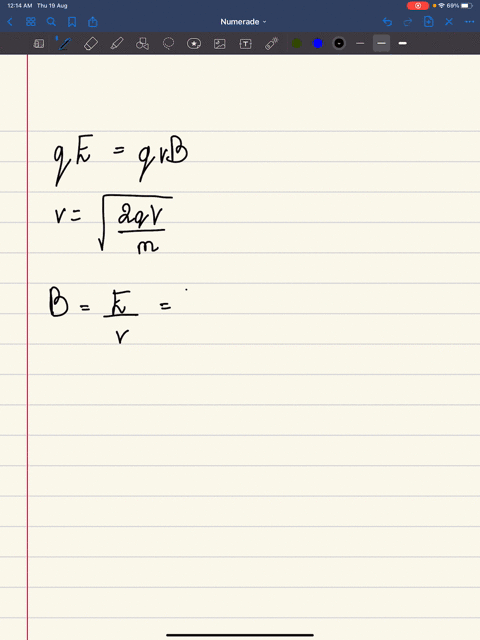 12:14 AM Thu 19 Aug 69%
Numerade
qE = qvB
v = √(2qV/m)
B = E/v =